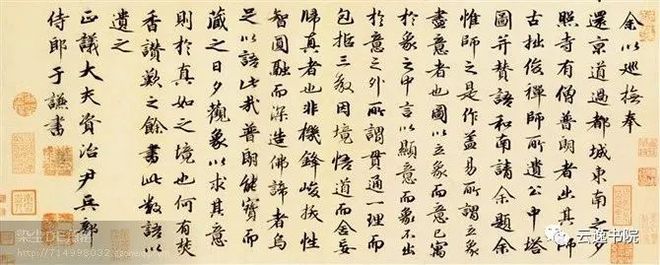 余以巡撫奉
還京道過都城東南之夕
照寺有僧普朗者出其師
古拙俊禪師所遺公中塔
圖并贊語和南請余題余
惟師之是作蓋易所謂立象
盡意者也圖以立象而意已寓
於象之中言以顯意而象不出
於意之外所謂貫通一理而
包括三教因境悟道而舍妄
歸真者也非機鋒峻拔性
智圓融而深造佛諦者烏
足以語此哉普朗能寶而
藏之日夕觀象以求其意
則於真如之境也何有焚
香讚歎之餘書此數語以
遺之
正議大夫資治尹兵部
侍郎于謙書
云逸书院